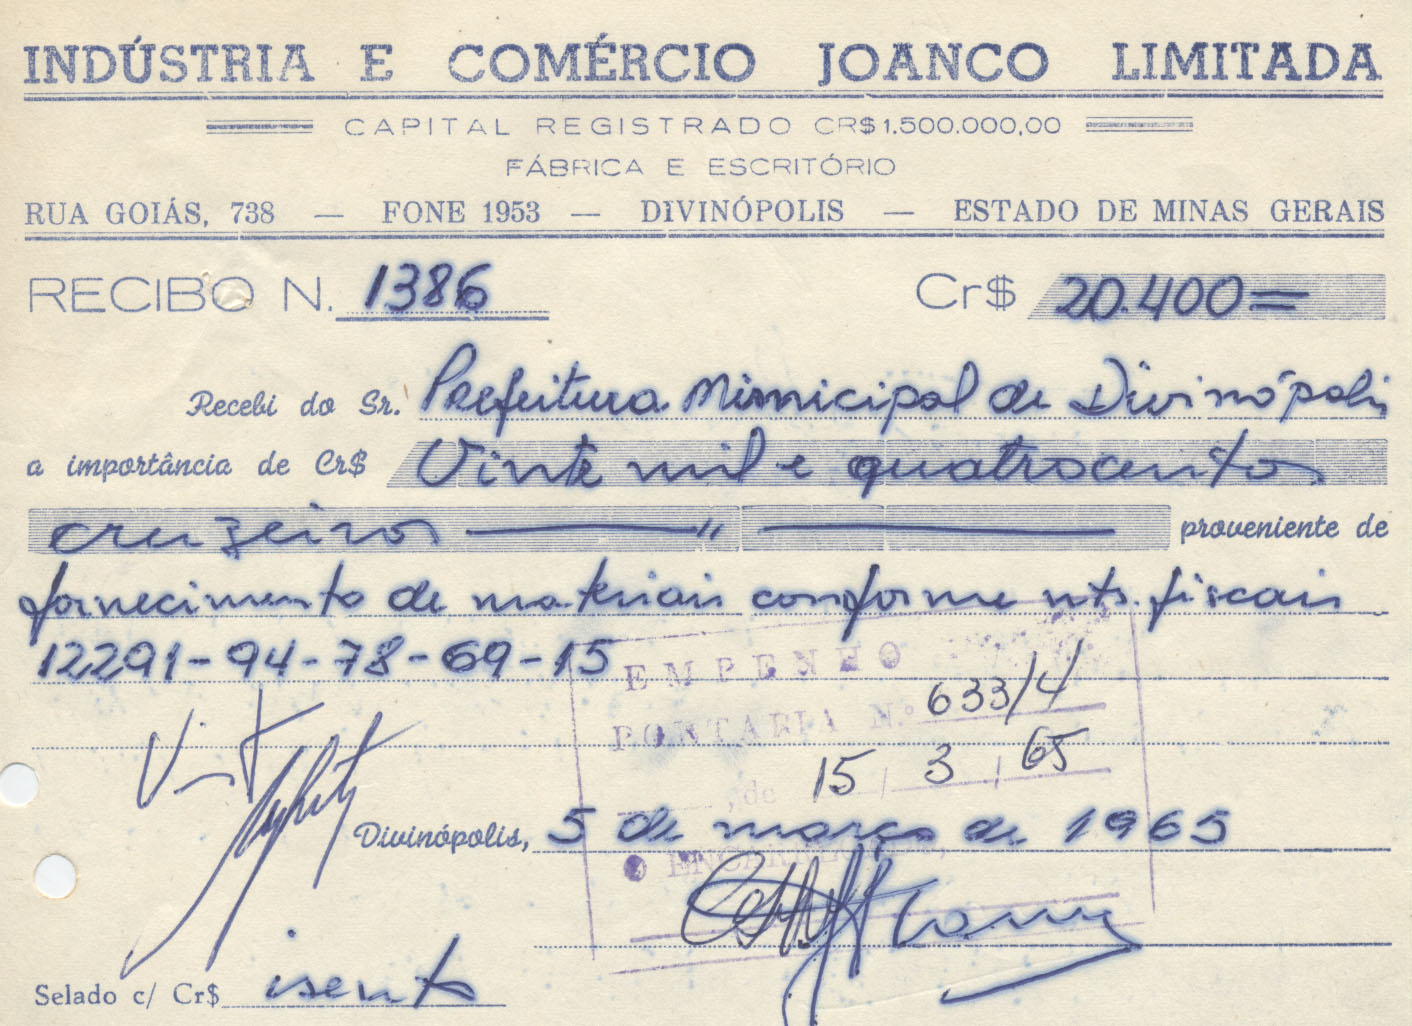 INDÚSTRIA E COMÉRCIO JOANCO LIMITADA
CAPITAL REGISTRADO CR$1.500.000,00
FÁBRICA E ESCRITÓRIO
RUA GOIÁS, 738 — FONE 1953 — DIVINÓPOLIS — ESTADO DE MINAS GERAIS
RECIBO N. 1386 Cr$ 20.400=
Recebi do Sr. Prefeitura Municipal de Divinópolis
a importância de Cr$ Vinte mil e quatrocentos
cruzeiros ——— " ——— proveniente de
fornecimento de materiais conforme nts. fiscais
12291-94-78-69-15
EMPENHO
PORTARIA N.º 633/4
, de 15 / 3 / 65
Divinópolis, 5 de março de 1965
O ENCARREGADO,
Selado c/ Cr$ isento